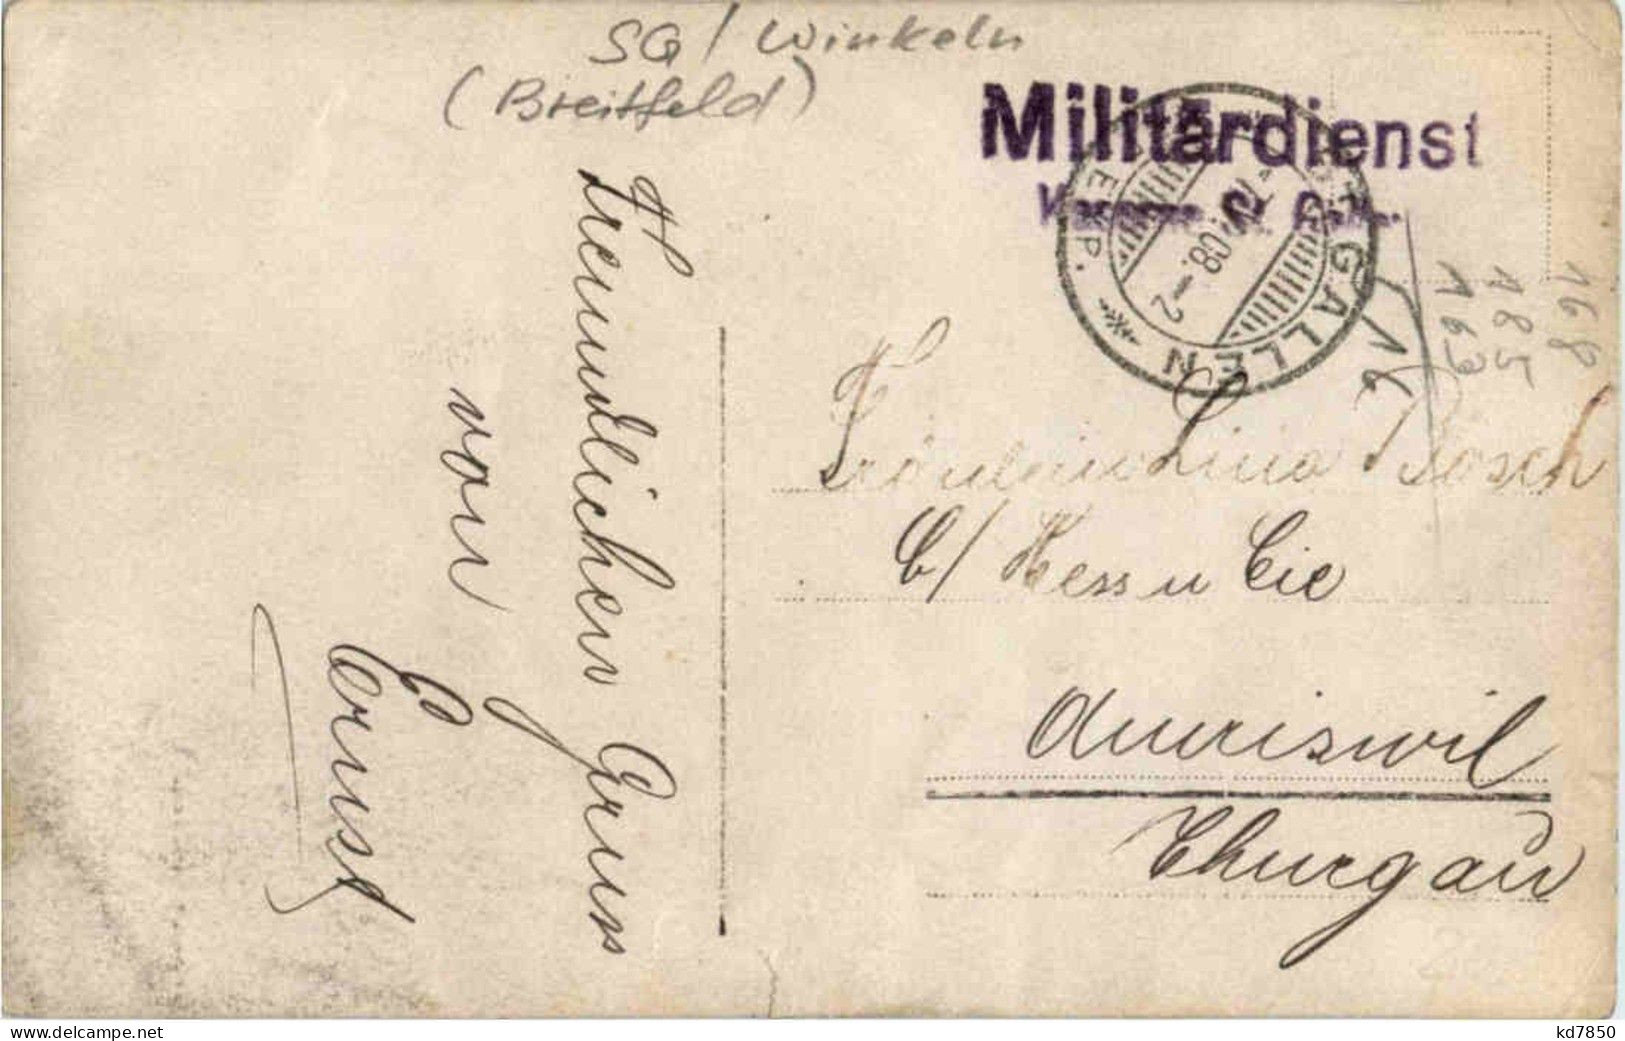 SG / Winkeln
(Breitfeld)
Militärdienst
ST. GALLEN
EXP.
08.–2
168
185
163
16
Freundlichen Gruss
von
Ernst
Fräulein Lina Bösch
b/ Hess u Cie
Amriswil
Thurgau
www.delcampe.net
kd7850